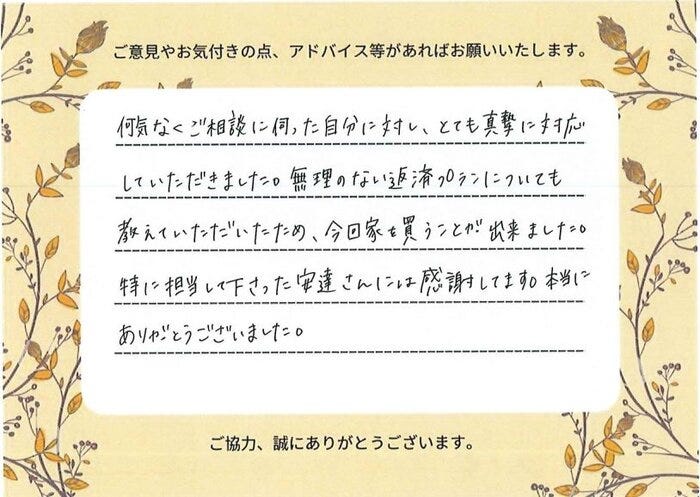 ご意見やお気付きの点、アドバイス等があればお願いいたします。
何気なくご相談に伺った自分に対し、とても真摯に対応
していただきました。無理のない返済プランについても
教えていただいたため、今回家を買うことが出来ました。
特に担当して下さった安達さんには感謝してます。本当に
ありがとうございました。
ご協力、誠にありがとうございます。